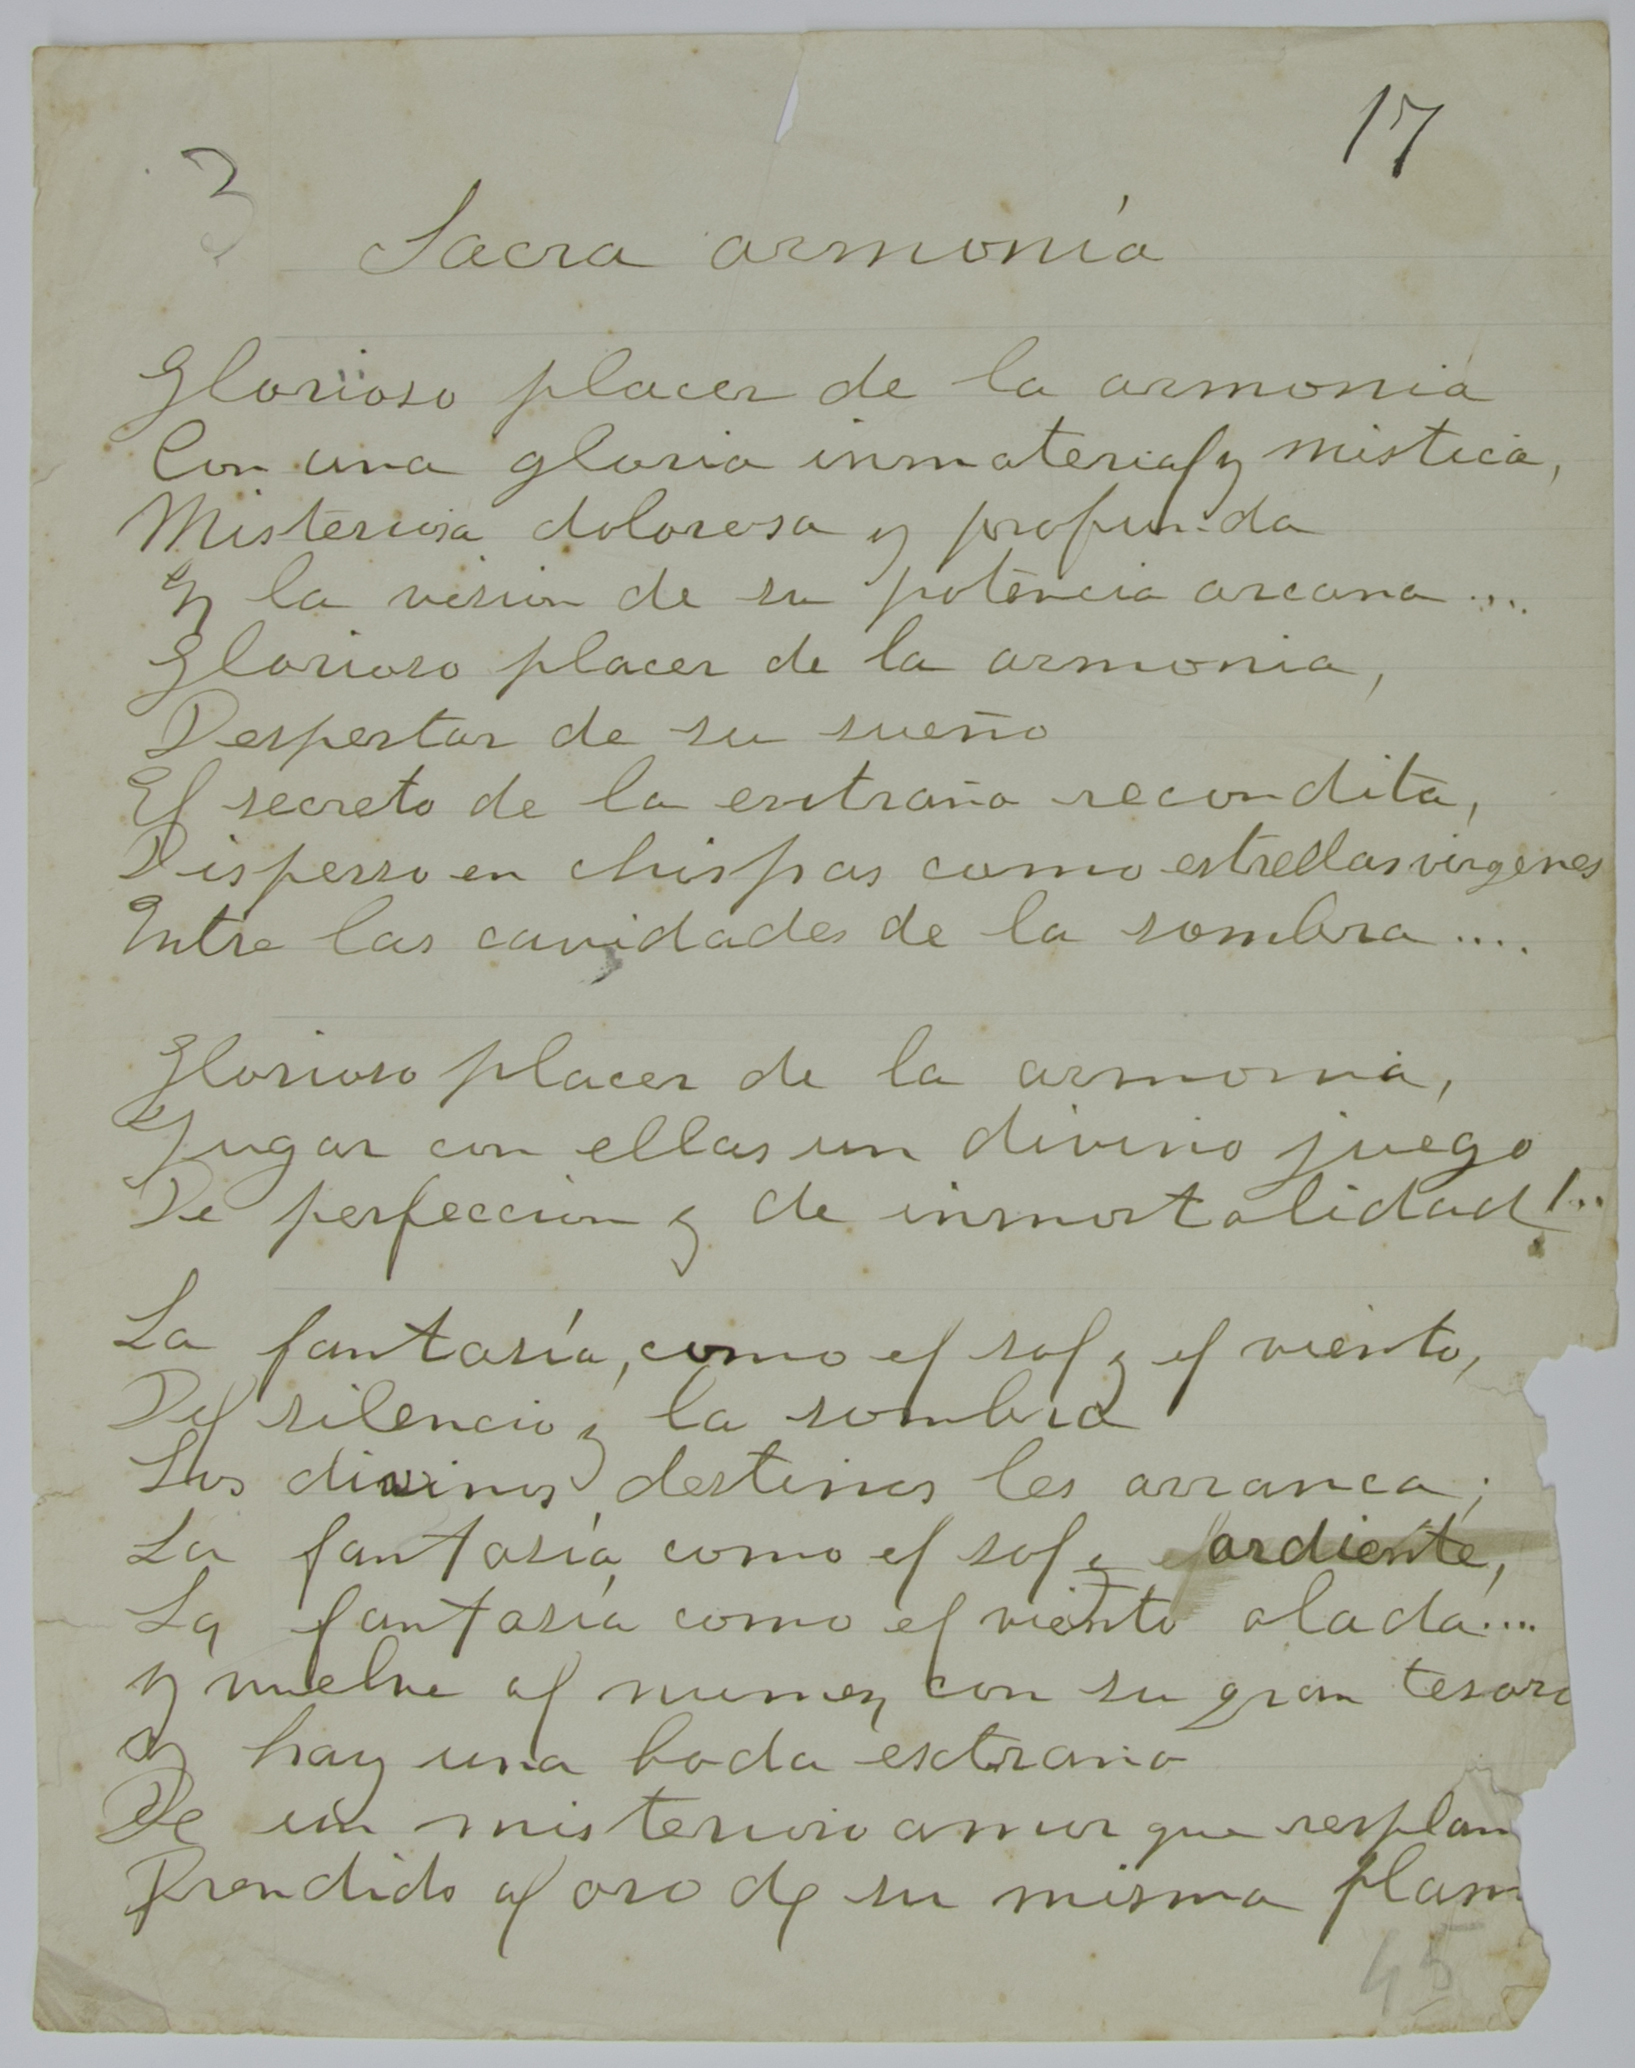 17
3
Sacra armonía
Glorioso placer de la armonia
Con una gloria inmaterial y mistica,
Misteriosa dolorosa y profunda
Y la vision de su potencia arcana....
Glorioso placer de la armonia,
Despertar de su sueño
El secreto de la entraña recondita,
Disperso en chispas como estrellas virgenes
Entre las cavidades de la sombra....
Glorioso placer de la armonia,
Jugar con ellas un divino juego
De perfeccion y de inmortalidad!..
La fantasía, como el sol y el viento,
Del silencio y la sombra
Los divinos destinos les arranca;
La fantasía como el sol ardiente,
La fantasía como el viento alada....
Y vuelve al numen, con su gran tesoro
Y hay una boda extraña
De un misterioso amor que resplan
Prendido al oro de su misma flam
45